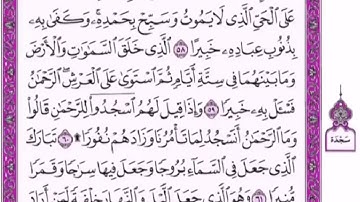 عَلَى ٱلْحَيِّ ٱلَّذِى لَا يَمُوتُ وَسَبِّحْ بِحَمْدِهِۦ وَكَفَىٰ بِهِۦ
بِذُنُوبِ عِبَادِهِۦ خَبِيرًا ٥٨ ٱلَّذِى خَلَقَ ٱلسَّمَٰوَٰتِ وَٱلْأَرْضَ
وَمَا بَيْنَهُمَا فِى سِتَّةِ أَيَّامٍ ثُمَّ ٱسْتَوَىٰ عَلَى ٱلْعَرْشِ ٱلرَّحْمَٰنُ
فَسْـَٔلْ بِهِۦ خَبِيرًا ٥٩ وَإِذَا قِيلَ لَهُمُ ٱسْجُدُوا۟ لِلرَّحْمَٰنِ قَالُوا۟
وَمَا ٱلرَّحْمَٰنُ أَنَسْجُدُ لِمَا تَأْمُرُنَا وَزَادَهُمْ نُفُورًا ۩ ٦٠ تَبَارَكَ
ٱلَّذِى جَعَلَ فِى ٱلسَّمَآءِ بُرُوجًا وَجَعَلَ فِيهَا سِرَٰجًا وَقَمَرًا
مُّنِيرًا ٦١ وَهُوَ ٱلَّذِى جَعَلَ ٱلَّيْلَ وَٱلنَّهَارَ خِلْفَةً لِّمَنْ أَرَادَ
سجدة